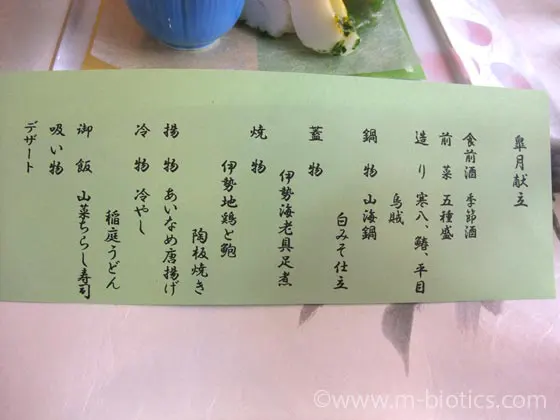 皐月献立
食前酒 季節酒
前菜 五種盛
造り 寒八、鰆、平目
烏賊
鍋物 山海鍋
白みそ仕立
蓋物
伊勢海老具足煮
焼物
伊勢地鶏と鮑
陶板焼き
揚物 あいなめ唐揚げ
冷物 冷やし
稲庭うどん
御飯 山菜ちらし寿司
吸い物
デザート
©www.m-biotics.com